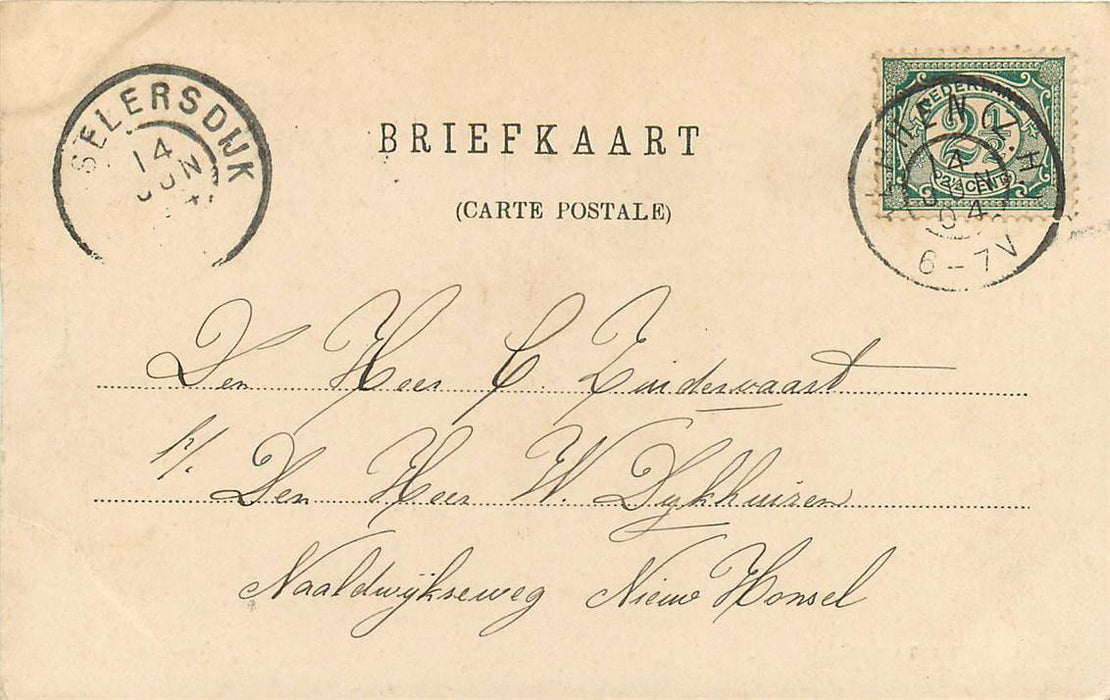 SELERSDIJK
14 JUN 04
BRIEFKAART
(CARTE POSTALE)
NEDERLAND
2½
2½ CENT
HEN (Z.H.
14 JUN 04
6-7V
Den Heer C. Zuidervaart
p/. Den Heer W. Dijkhuizen
Naaldwijkseweg Nieuw Honsel